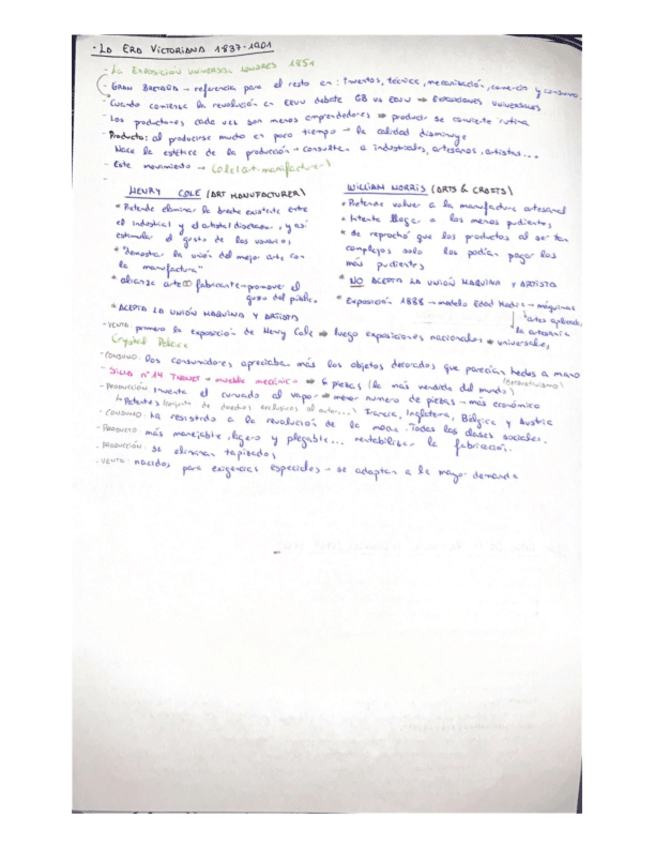 · LA ERA VICTORIANA 1837-1901
- La EXPOSICIÓN UNIVERSAL LONDRES 1851
- GRAN BRETAÑA → referencia para el resto en: inventos, técnica, mecanización, comercio y consumo.
- Cuando comienza la revolución en EEUU debate GB vs EEUU ⇒ EXPOSICIONES UNIVERSALES
- Los productores cada vez son menos emprendedores ⇒ producir se convierte rutina
- Producto: al producirse mucho en poco tiempo → la calidad disminuye
Nace la estética de la producción → consultan a industriales, artesanos, artistas...
- Este movimiento → Cole (art. manufacturer)
HENRY COLE (ART MANUFACTURER)
* Pretende eliminar la brecha existente entre
el industrial y el artista/diseñador, y así
estimular el gusto de los usuarios
* "demostrar la unión del mejor arte con
la manufactura"
* alianza arte fabricante → promover el
gusto del público.
* ACEPTA LA UNIÓN MÁQUINA Y ARTISTA
WILLIAM MORRIS (ARTS & CRAFTS)
* Pretende volver a la manufactura artesanal
* Intenta llegar a los menos pudientes
* Se reprochó que los productos al ser tan
complejos solo los podían pagar los
más pudientes
* NO ACEPTA LA UNIÓN MÁQUINA Y ARTISTA
* Exposición 1888 → modelo Edad Media → máquinas
artes aplicadas
la artesanía
- VENTA primero la exposición de Henry Cole ⇒ luego exposiciones nacionales ⇒ universales
Crystal Palace
- CONSUMO: los consumidores apreciaban más los objetos decorados que parecían hechos a mano
(decorativismo)
- SILLA nº 14 THONET → mueble mecánico ⇒ 6 piezas (la más vendida del mundo)
- PRODUCCIÓN inventa el curvado al vapor ⇒ menor numero de piezas → más económico
↳ Patentes (conjunto de derechos exclusivos al autor...) Francia, Inglaterra, Bélgica y Austria
- CONSUMO: ha resistido a la revolución de la moda. Todas las clases sociales.
- PRODUCTO más manejable, ligero y plegable... rentabilizar la fabricación.
- PRODUCCIÓN: se eliminan tapizados
- VENTA: nacidos para exigencias especiales → se adaptan a la mayor demanda